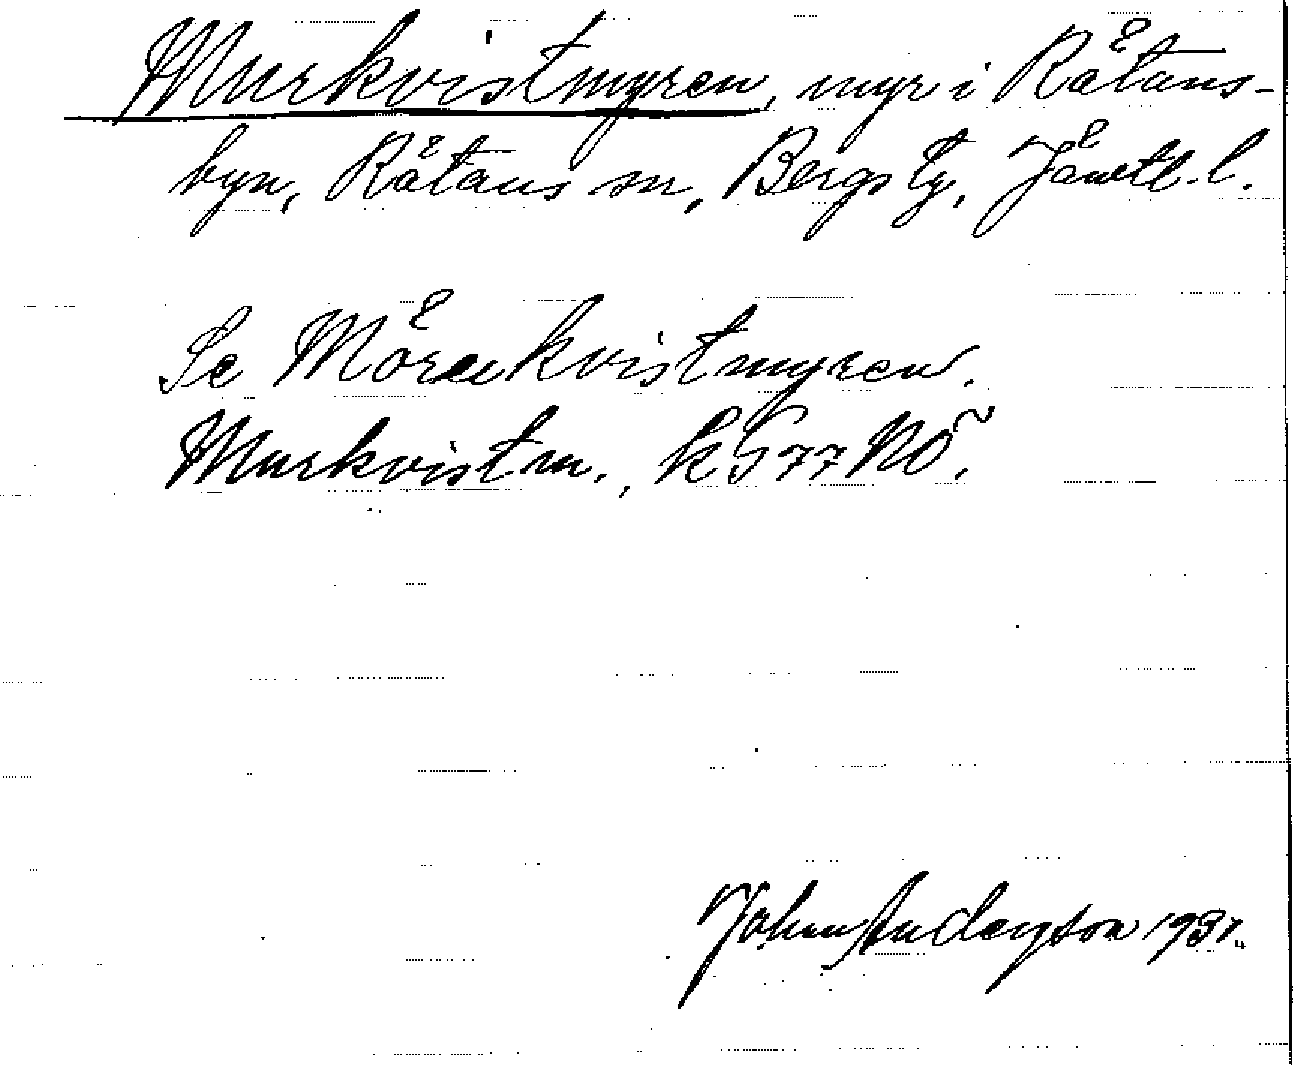 Murkvistmyren, myr i Rätans-
byn, Rätans sn, Bergs tg, Jämtl. l.
Se Mörkvistmyren.
Murkvistm., k 577 NÖ.
John Anderson 1931.